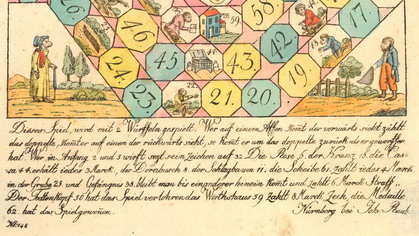 26.
46.
58.
17.
39.
45
44
43.
42.
24.
19.
18.
23
22.
21.
20.
Dieses Spiel, wird mit 2 Würffeln gespielt. Wer auf einen Affen komt der vorwärts sieht zählt
das doppelte, komter auf einen der rückwärts sieht, so komt er um das doppelte zurück als er geworffen
hat. Wer in Anfang 2 und 3 wirft setzt sein Zeichen auf 32. Die Rose 5. der Kranz 13. die
44. erhält jedes Marck, der Dornbusch 8. der Schlagbaum 11. die Scheibe 61. zahlt jedes 4
in der Grube 23 und Gefängnus 38. bleibt man bis ein anderer hinein komt und zahlt 6 Marck Straff.
Der Todtenkopf 50 hat das Spiel verlohren das Wirthshaus 39 zahlt 3 Marck Zech, die Medaille
62. hat das Spiel gewonnen. Nürnberg bei Joh.
No. 144